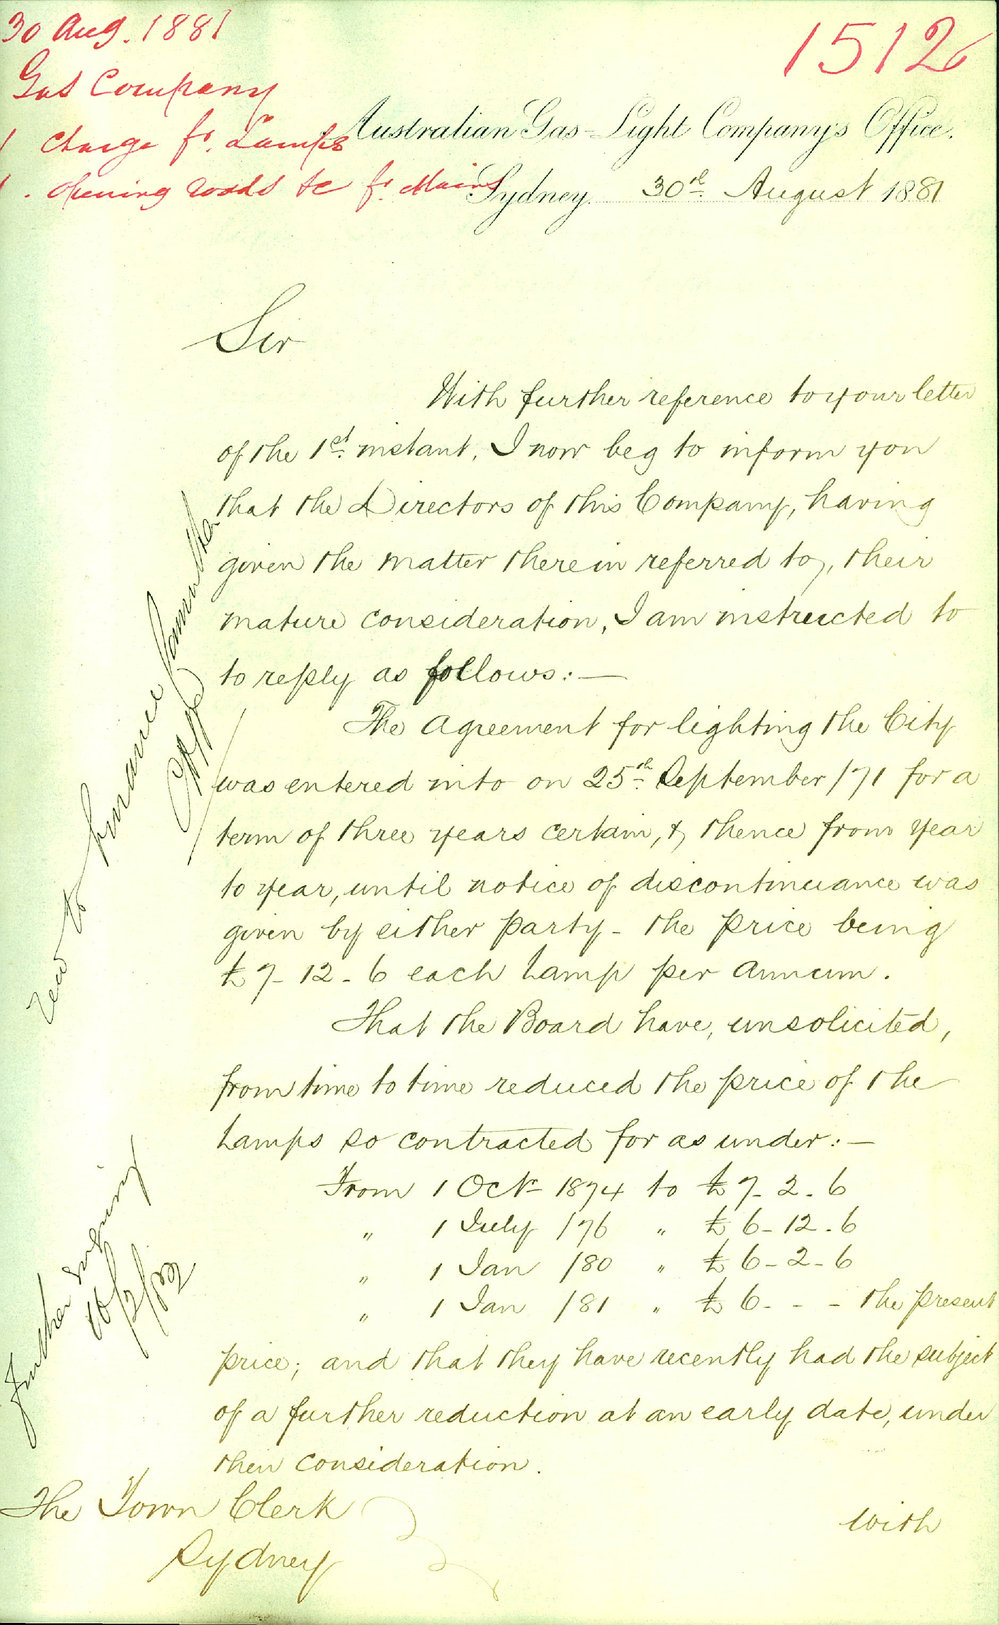 30 Aug. 1881
1512
Gas Company
1 Charge fr. Lamps
1. Opening roads &c fr. Mains
Australian Gas-Light Company's Office.
Sydney. 30th August 1881
Sir
With further reference to your letter
of the 1st instant, I now beg to inform you
that the Directors of this Company, having
given the matter therein referred to, their
mature consideration, I am instructed to
to reply as follows:—
The Agreement for lighting the City
was entered into on 25th September /71 for a
term of three years certain, & thence from year
to year, until notice of discontinuance was
given by either party - the price being
£7-12-6 each Lamp per annum.
That the Board have, unsolicited,
from time to time reduced the price of the
Lamps so contracted for as under:—
From 1 Octr 1874 to £7-2-6
" 1 July /76 " £6-12-6
" 1 Jan /80 " £6-2-6
" 1 Jan /81 " £6- - - the present
price; and that they have recently had the subject
of a further reduction at an early date, under
their consideration.
with
The Town Clerk
Sydney
to Finance Committee
Further